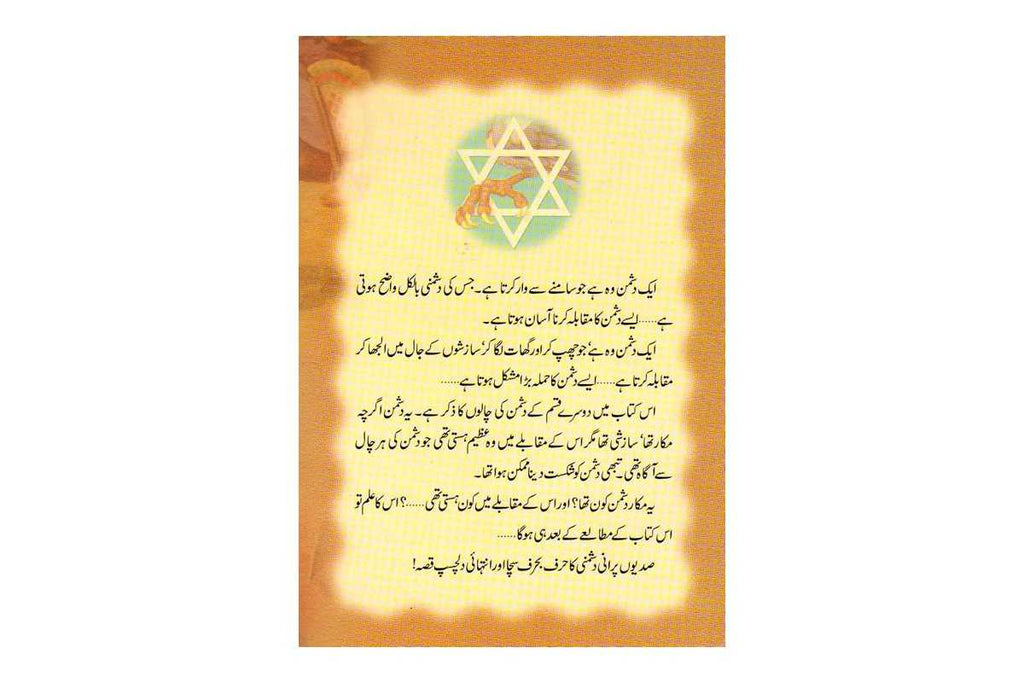 ایک دشمن وہ ہے جو سامنے سے وار کرتا ہے۔ جس کی دشمنی بالکل واضح ہوتی
ہے......ایسے دشمن کا مقابلہ کرنا آسان ہوتا ہے۔
ایک دشمن وہ ہے‘ جو چھپ کر اور گھات لگا کر‘ سازشوں کے جال میں الجھا کر
مقابلہ کرتا ہے......ایسے دشمن کا حملہ بڑا مشکل ہوتا ہے......
اس کتاب میں دوسرے قسم کے دشمن کی چالوں کا ذکر ہے۔ یہ دشمن اگرچہ
مکار تھا‘ سازشی تھا مگر اس کے مقابلے میں وہ عظیم ہستی تھی جو دشمن کی ہر چال
سے آگاہ تھی۔ تبھی دشمن کو شکست دینا ممکن ہوا تھا۔
یہ مکار دشمن کون تھا؟ اور اس کے مقابلے میں کون ہستی تھی......؟ اس کا علم تو
اس کتاب کے مطالعے کے بعد ہی ہوگا......
صدیوں پرانی دشمنی کا حرف بحرف سچا اور انتہائی دلچسپ قصہ!